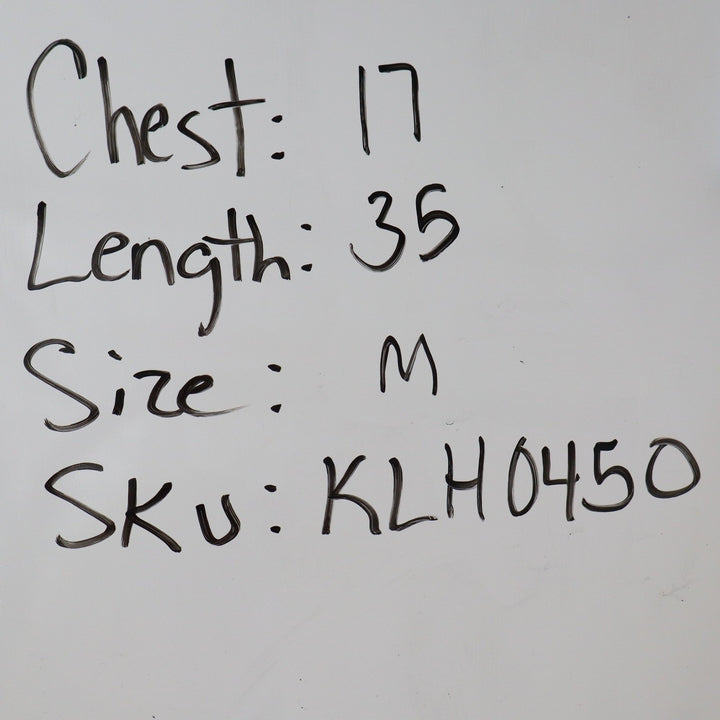 Chest: 17
Length: 35
Size: M
SKU: KLH0450